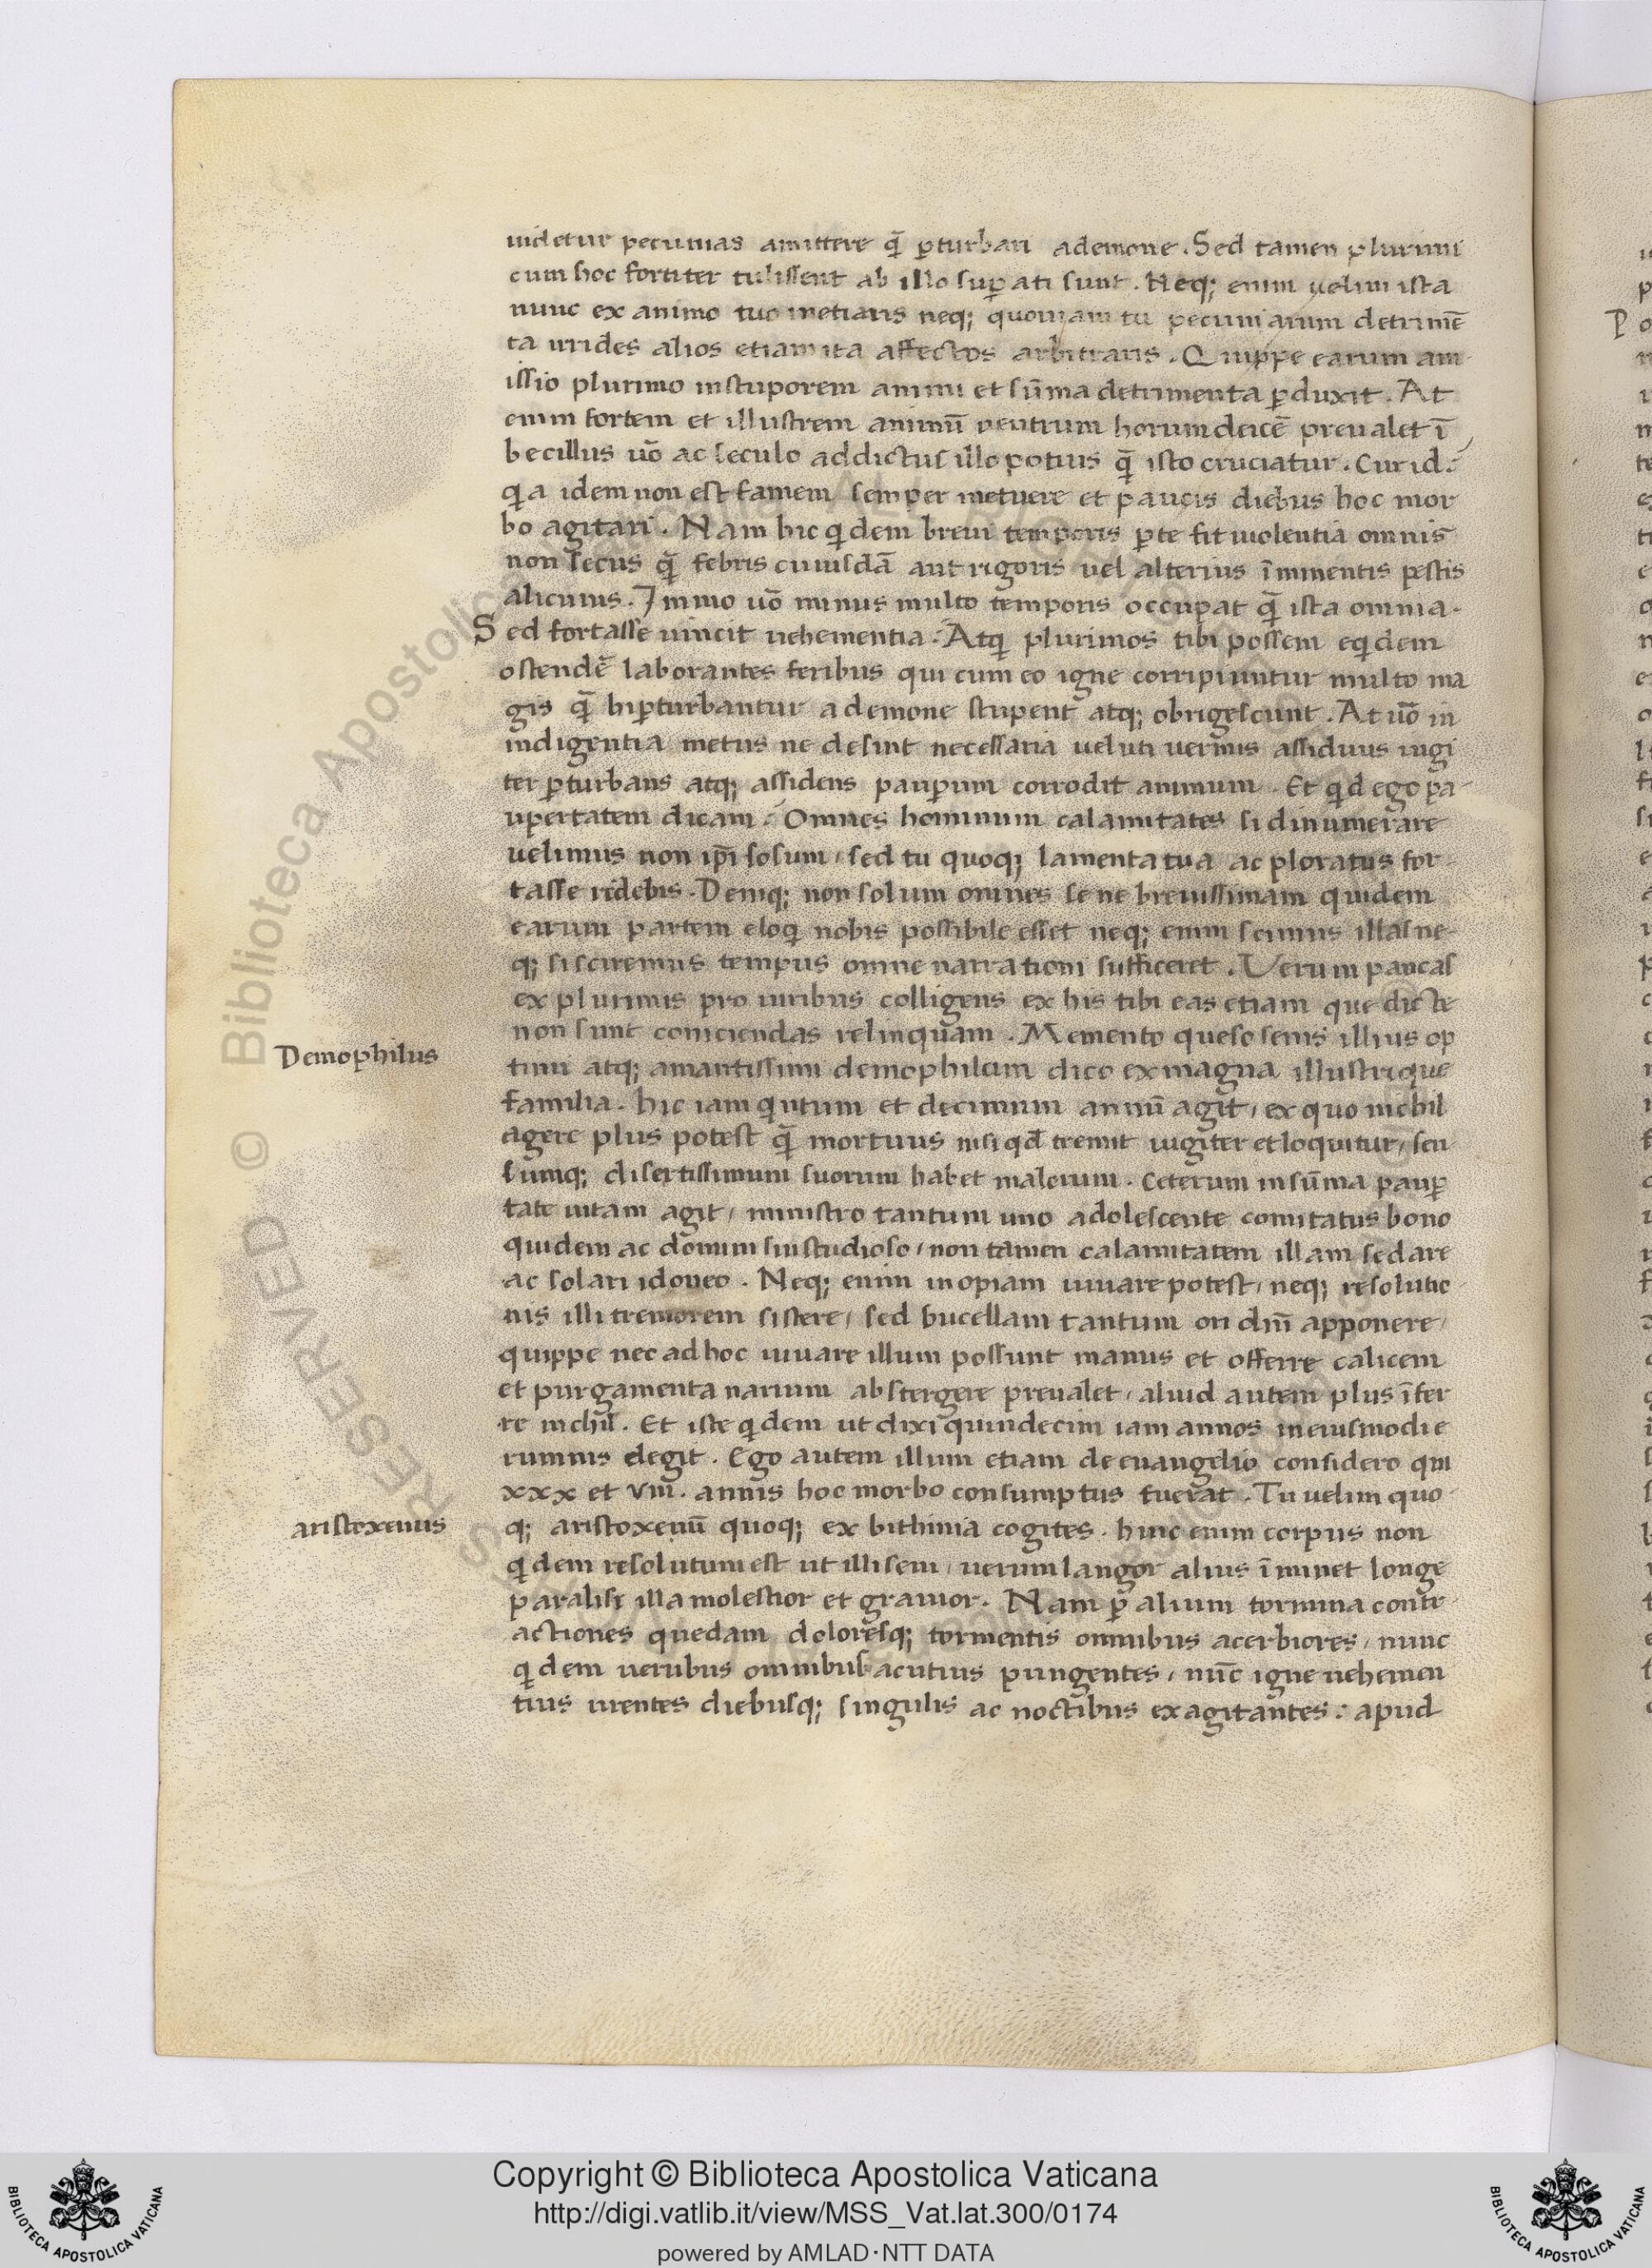 uidetur pecunias amittere q̃ ꝑturbari ademone. Sed tamen plurimi
cum hoc fortiter tulissent ab illo suꝑati sunt. Neq; enim uelim ista
nunc ex animo tuo metiaris neq; quoniam tu pecuniarum detrimē
ta irrides alios etiam ita affectos arbitraris. Quippe earum am
issio plurimo instuporem animi et sūma detrimenta ꝑduxit. At
enim fortem et illustrem animū neutrum horum deicē preualet ī
becillus uō ac seculo addictus illo potius q̃ isto cruciatur. Cur id:
qa idem non est famem semper metuere et paucis diebus hoc mor
bo agitari. Nam hic qdem breui temporis ꝑte fit uiolentia omnis
non secus q̃ febris cuiusdā aut rigoris uel alterius īminentis pestis
alicuius. Immo uō minus multo temporis occupat q̃ ista omnia.
Sed fortasse uincit uehementia. Atq plurimos tibi possem eqdem
ostendē laborantes feribus qui cum eo igne corripiuntur multo ma
gis q̃ hi ꝑturbantur ademone stupent atq; obrigescunt. At uō in
indigentia metus ne desint necessaria ueluti uermis assiduus iugi
ter ꝑturbans atq; assidens pauꝑum corrodit animum. Et qd ego pa
upertatem dicam: Omnes hominum calamitates si dinumerare
uelimus non ip̄i solum, sed tu quoq; lamenta tua ac ploratus for
tasse ridebis. Demq; non solum omnes se ne breuissimam quidem
earum partem eloq nobis possibile esset neq; enim scimus illas ne
q; si sciremus tempus omne narrationi sufficeret. Verum paucas
ex plurimis pro uiribus colligens ex his tibi eas etiam que dicte
non sunt coniciendas relinquam. Memento queso senis illius op
Demophilus
timi atq; amantissimi demophilum dico ex magna illustrique
familia. hic iam qntum et decimum annū agit, ex quo nichil
agere plus potest q̃ mortuus nisi qd̄ tremit iugiter et loquitur, sen
sumq; disertissimum suorum habet malorum. Ceterum in sūma pauꝑ
tate uitam agit, ministro tantum uno adolescente comitatus bono
quidem ac domini sui studioso, non tamen calamitatem illam sedare
ac solari idoneo. Neq; enim inopiam iuuare potest, neq; resolutio
nis illi tremorem sistere, sed bucellam tantum ori dn̄i apponere,
quippe nec ad hoc iuuare illum possunt manus et offerre calicem
et purgamenta narium abstergere preualet, aliud autem plus īfer
re nichil. Et iste qdem ut dixi quindecim iam annos in eiusmodi e
rumnis degit. Ego autem illum etiam de euangelio considero qui
xxx et viii. annis hoc morbo consumptus fuerat. Tu uelim quo
aristoxenus
q; aristoxenū quoq; ex bithinia cogites. huic enim corpus non
qdem resolutum est ut illi seni, uerum langor alius īminet longe
paralisi illa molestior et grauior. Nam ꝑ alium tormina contr
actiones quedam doloresq; tormentis omnibus acerbiores, nunc
qdem uerubus omnibus acutius pungentes, nūc igne uehemen
tius urentes diebusq; singulis ac noctibus exagitantes: apud
Copyright © Biblioteca Apostolica Vaticana
http://digi.vatlib.it/view/MSS_Vat.lat.300/0174
powered by AMLAD·NTT DATA
BIBLIOTECA APOSTOLICA VATICANA
BIBLIOTECA APOSTOLICA VATICANA